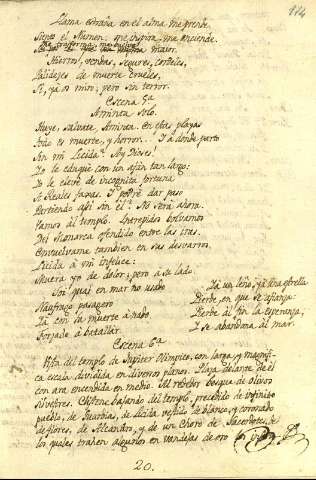 114
Llama estraña en el alma me prende
Siento el Numen, me inspira, me enciende
mayor.
Hierros, vendas, segures, cordeles,
Palideces de muerte crueles,
Sí, ya os miro; pero sin terror.
Escena 5ª
Aminta solo.
Huye, salvate, Aminta. En estas playas
todo es muerte, y horror... Y a donde parto
Sin mi Licida? Ay Dioses!
Yo le eduqué con un afán tan largo:
Yo le elevé de incognita fortuna
A Reales faxas. Y podré dar paso
Partiendo asi sin él? No será ahora.
Vamos al templo. Intrepidos bolvamos
Del Monarca ofendido entre las iras.
Envuelvame tambien en sus desvarros
Licida à mi infelice:
Muera yo de dolor; pero a su lado.
Soi qual en mar no usado
Naufrago pasagero
Yà con la muerte à nado
Forzado à batallàr.
Yà un leño, yà una estrella
Pierde, en que se afianza:
Pierde al fin la esperanza,
Y se abandona al mar.
Escena 6ª
Vista del templo de Jupiter Olimpico, con larga, y magnifica
escala dividida en diversos planos. Plaza delante de él
con ara encendida en medio. Al rededor bosque de olivos
silvestres. Clistene bajando del templo, precedido de infinito
pueblo, de Guardias, de Licida vestido de blanco, y coronado
de flores, de Alcandro, y de un Choro de Sacerdotes, de
los quales trahen algunos en vandejas de oro los
20.